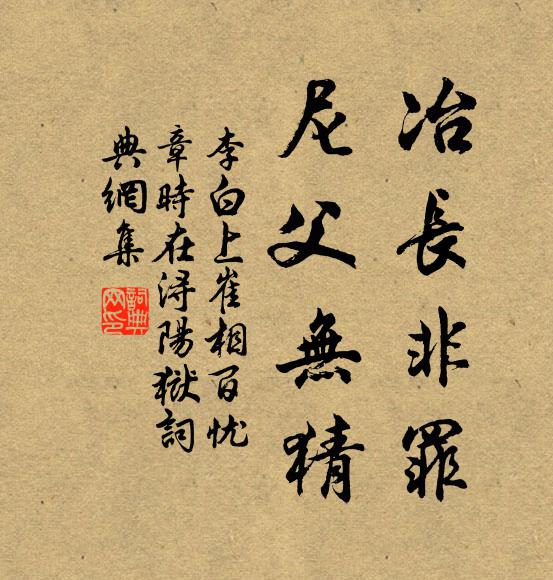 冶長非罪
尼父無猜
李白上崔相百忧
章時在浔陽獄詞
典網集
詞典网印